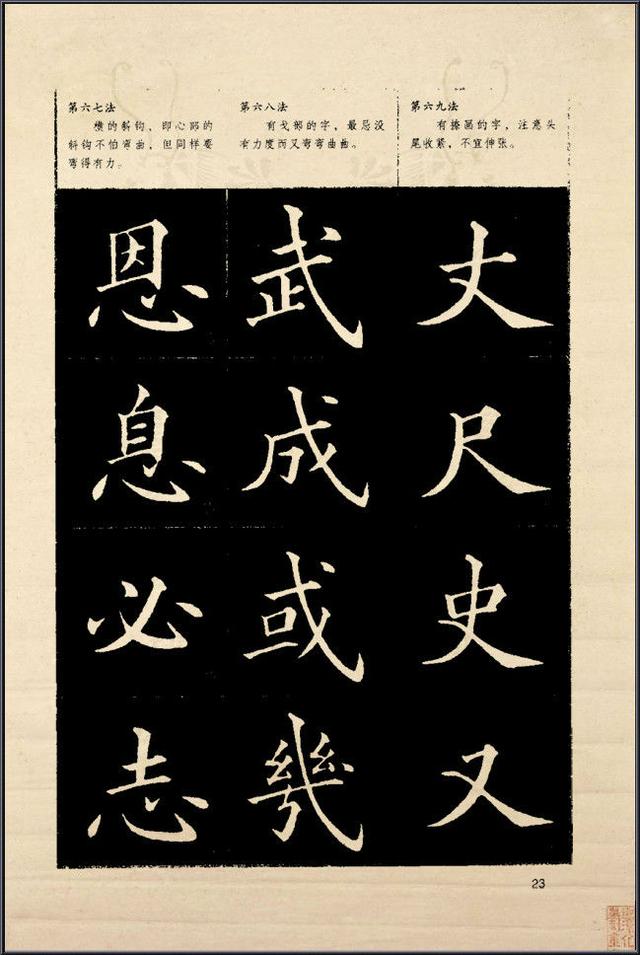 第六七法
横的斜钩、即心部的
斜钩不怕弯曲，但同样要
弯得有力。
第六八法
有戈部的字，最忌没
有力度而又弯弯曲曲。
第六九法
有捺画的字，注意头
尾收紧，不宜伸张。
恩 武 丈
息 成 尺
必 或 史
志 幾 又
23